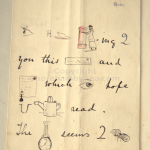 H -ing 2
you this and
which hope
read.
The seems 2